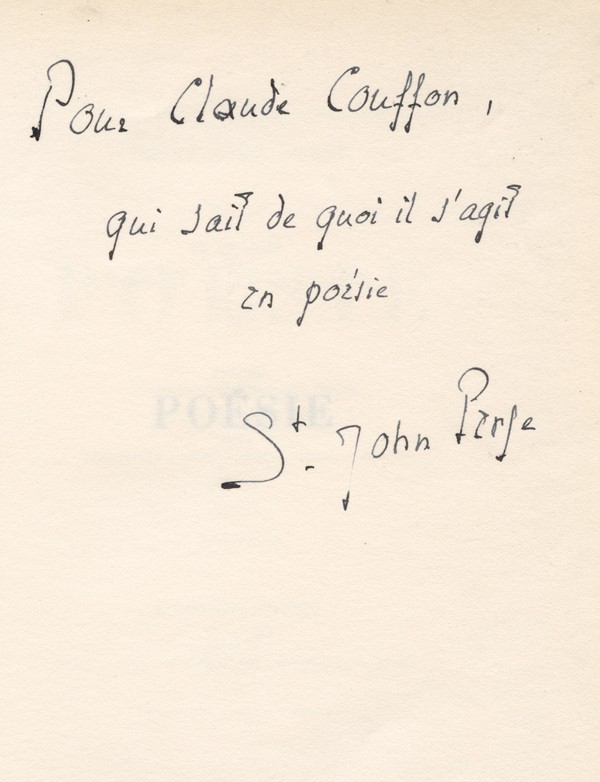 Pour Claude Couffon,
qui sait de quoi il s'agit
en poésie
POÉSIE
St. John Perse